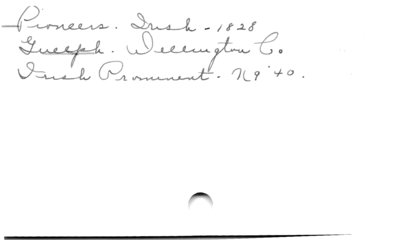 Pioneers. Irish - 1828
Guelph. Wellington Co.
Irish Prominent - N9 '40.